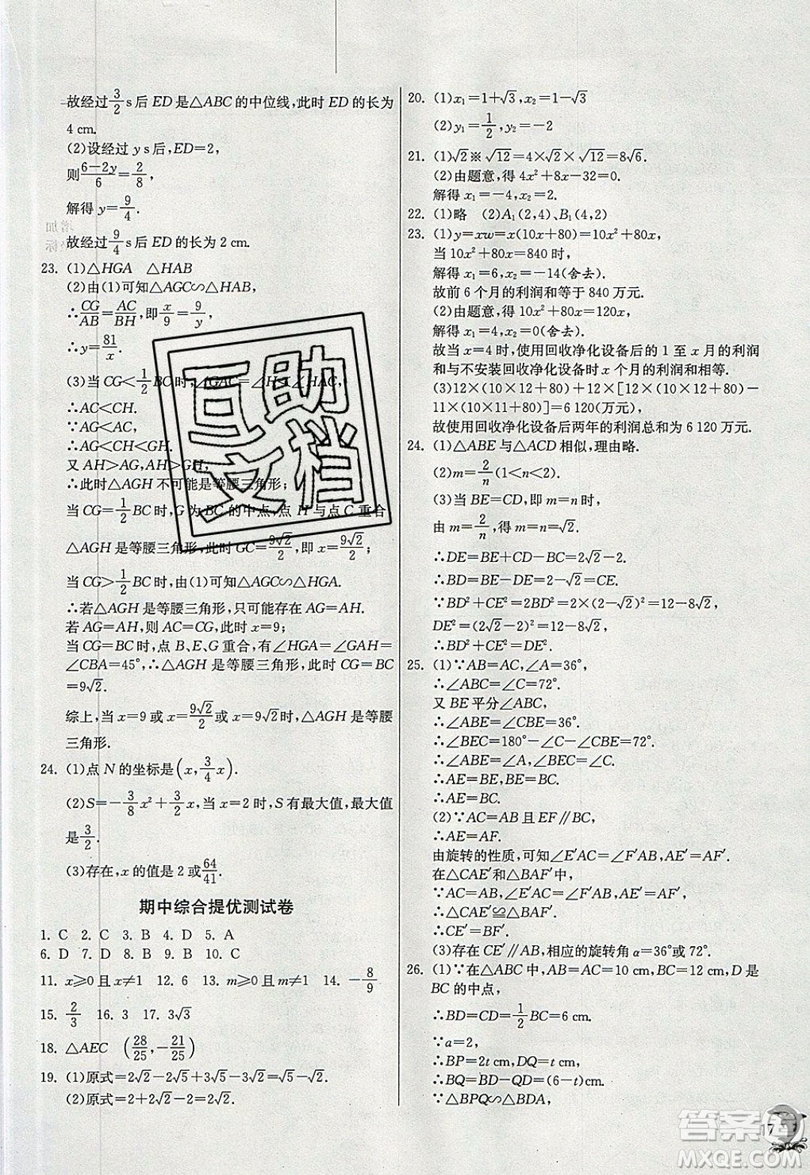 故经过3/2 s后ED是△ABC的中位线,此时ED的长为
4 cm.
(2)设经过 y s后,ED=2,
则(6-2y)/6=2/8,
解得 y=9/4.
故经过9/4 s后ED的长为2 cm.
23. (1)△HGA △HAB
(2)由(1)可知△AGC∽△HAB,
∴CG/AB=AC/BH,即x/9=9/y,
∴y=81/x.
(3)当CG<1/2BC时,∠GAC=∠H>∠HAC,
∴AC<CH.
∵AG<AC,
∴AG<CH<GH.
又AH>AG,AH>GH,
∴此时△AGH不可能是等腰三角形;
当CG=1/2BC时,G为BC的中点,点H与点C重合,
△AGH是等腰三角形,此时GC=9√2/2,即x=9√2/2;
当CG>1/2BC时,由(1)可知△AGC∽△HGA.
∴若△AGH是等腰三角形,只可能存在AG=AH.
若AG=AH,则AC=CG,此时x=9;
当CG=BC时,点B、E、G重合,有∠HGA=∠GAH=
∠CBA=45°,∴△AGH是等腰三角形,此时x=BC=
9√2.
综上,当x=9或x=9√2/2或9√2时,△AGH是等腰
三角形.
24. (1)点N的坐标是(x,3/4x).
(2)S=-3/8x²+3/2x,当x=2时,S有最大值,最大值
是3/2.
(3)存在,x的值是2或64/41.
期中综合提优测试卷
1. C 2. C 3. C 4. D 5. A
6. D 7. D 8. D 9. B 10. C
11. x≥0且x≠1 12. 6 13. m≥0且m≠1 14. -8/9
15. 2/3 16. 3 17. 3√3
18. △AEC (28/25,-21/25)
19. (1)原式=2√2-2√5+3√5-3√2=√5-√2
(2)原式=2+2√2-2-√2=√2
20. (1)x₁=1+√3,x₂=1-√3
(2)y₁=1/2,y₂=-2
21. (1)√2※√12=4×√2×√12=8√6.
(2)由题意,得4x²+8x-32=0.
解得 x₁=2,x₂=-4.
22. (1)略 (2)A₁(2,4)、B₁(4,2)
23. (1)y=xw=x(10x+80)=10x²+80x,
当10x²+80x=840时,
解得 x₁=6,x₂=-14(舍去).
故前6个月的利润和等于840万元.
(2)由题意,得10x²+80x=120x,
解得 x₁=4,x₂=0(舍去).
故当x=4时,使用回收净化设备后的1至x月的利润
和与不安装回收净化设备时x个月的利润和相等.
(3)12×(10×12+80)+12×[12×(10×12+80)-
11×(10×11+80)]=6 120(万元).
故使用回收净化设备后两年的利润总和为6 120万元.
24. (1)△ABE与△ACD相似,理由略.
(2)m=2/n(1<n<2).
(3)当BE=CD,即m=n时,
由m=2/n,得m=n=√2.
∴DE=BE+CD-BC=2√2-2.
∴BD=BE-DE=2-√2=CE.
∵BD²+CE²=2BD²=2(2-√2)²=12-8√2,
DE²=(2√2-2)²=12-8√2,
∴BD²+CE²=DE².
25. (1)∵AB=AC,∠A=36°,
∴∠ABC=∠C=72°.
又BE平分∠ABC,
∴∠ABE=∠CBE=36°.
∴∠BEC=180°-∠C-∠CBE=72°.
∴∠ABE=∠A,∠BEC=∠C.
∴AE=BE,BE=BC.
∴AE=BC.
(2)∵AC=AB且EF∥BC,
∴AE=AF.
由旋转的性质,可知∠E′AC=∠F′AB,AE′=AF′.
在△CAE′和△BAF′中,
∵AC=AB,∠E′AC=∠F′AB,AE′=AF′,
∴△CAE′≌△BAF′.
∴CE′=BF′.
(3)存在CE′∥AB,相应的旋转角α=36°或72°.
26. (1)∵在△ABC中,AB=AC=10 cm,BC=12 cm,D是
BC的中点,
∴BD=CD=1/2BC=6 cm.
∵a=2,
∴BP=2t cm,DQ=t cm.
∴BQ=BD-QD=(6-t)cm.
∵△BPQ∽△BDA,
互助
文档
答案
MXQE.COM